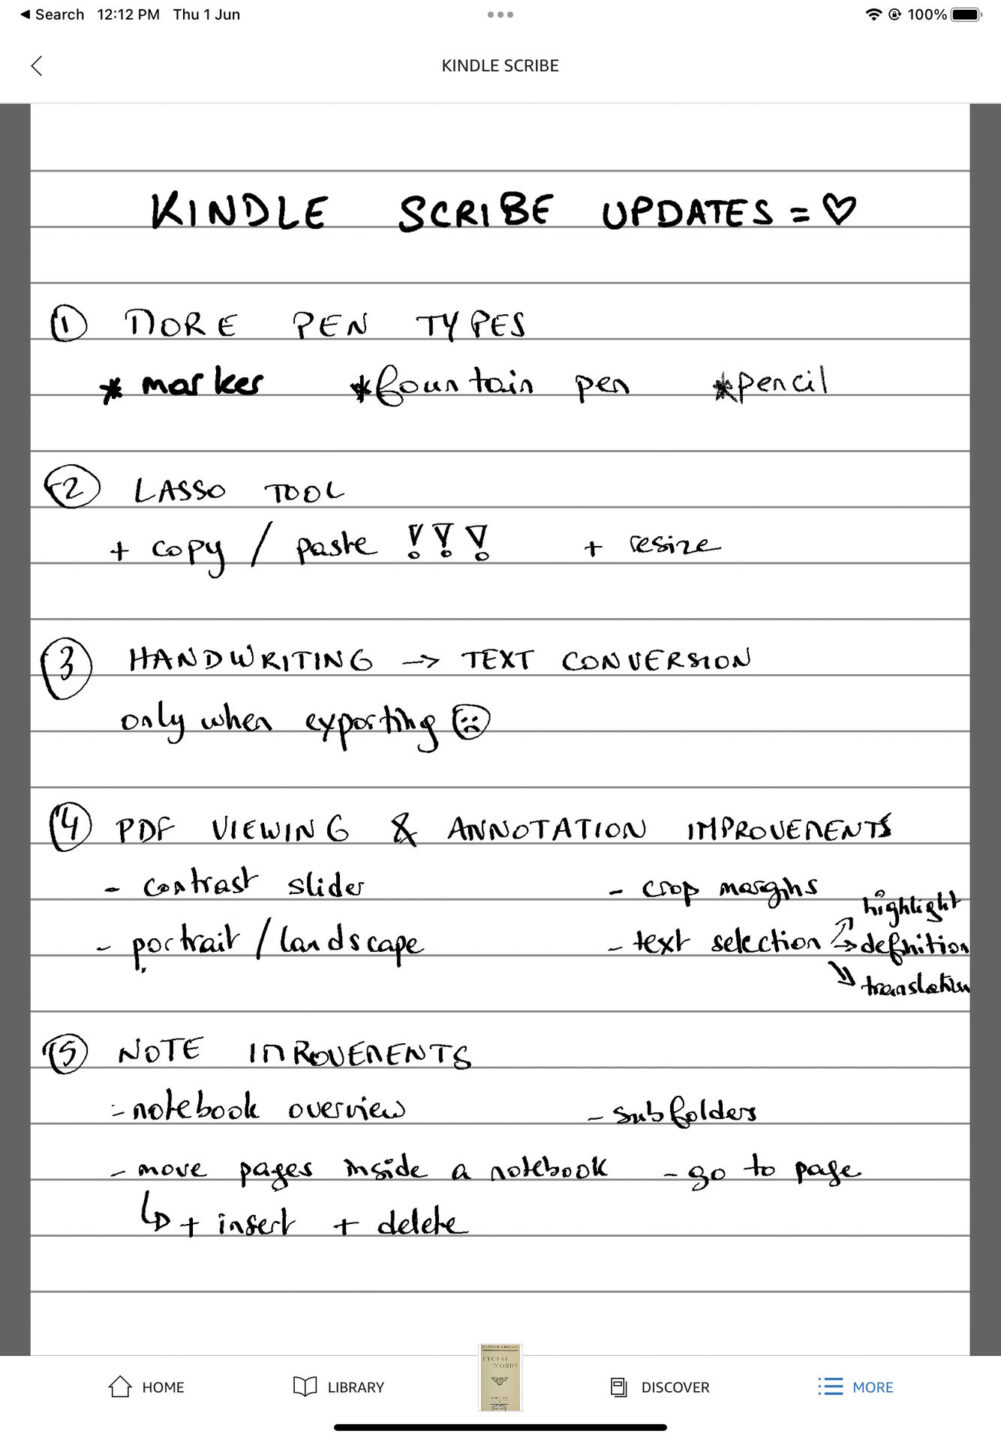 Search 12:12 PM Thu 1 Jun 100%
KINDLE SCRIBE
KINDLE SCRIBE UPDATES = ♡
① MORE PEN TYPES
* marker * fountain pen * pencil
② LASSO TOOL
+ copy / paste !!! + resize
③ HANDWRITING → TEXT CONVERSION
only when exporting ☹
④ PDF VIEWING & ANNOTATION IMPROVEMENTS
- contrast slider - crop margins
highlight
- portrait / landscape - text selection → definition
translation
⑤ NOTE IMROVEMENTS
- notebook overview - subfolders
- move pages inside a notebook - go to page
↳ + insert + delete
HOME LIBRARY DISCOVER MORE